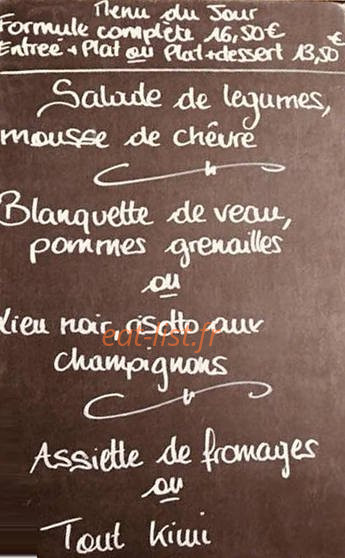 Menu du Jour
Formule complète 16,50€
Entrée + Plat ou Plat+dessert 13,50€
Salade de legumes,
mousse de chèvre
Blanquette de veau,
pommes grenailles
ou
Lieu noir, risotto aux
champignons
eat-list.fr
Assiette de fromages
ou
Tout Kiwi